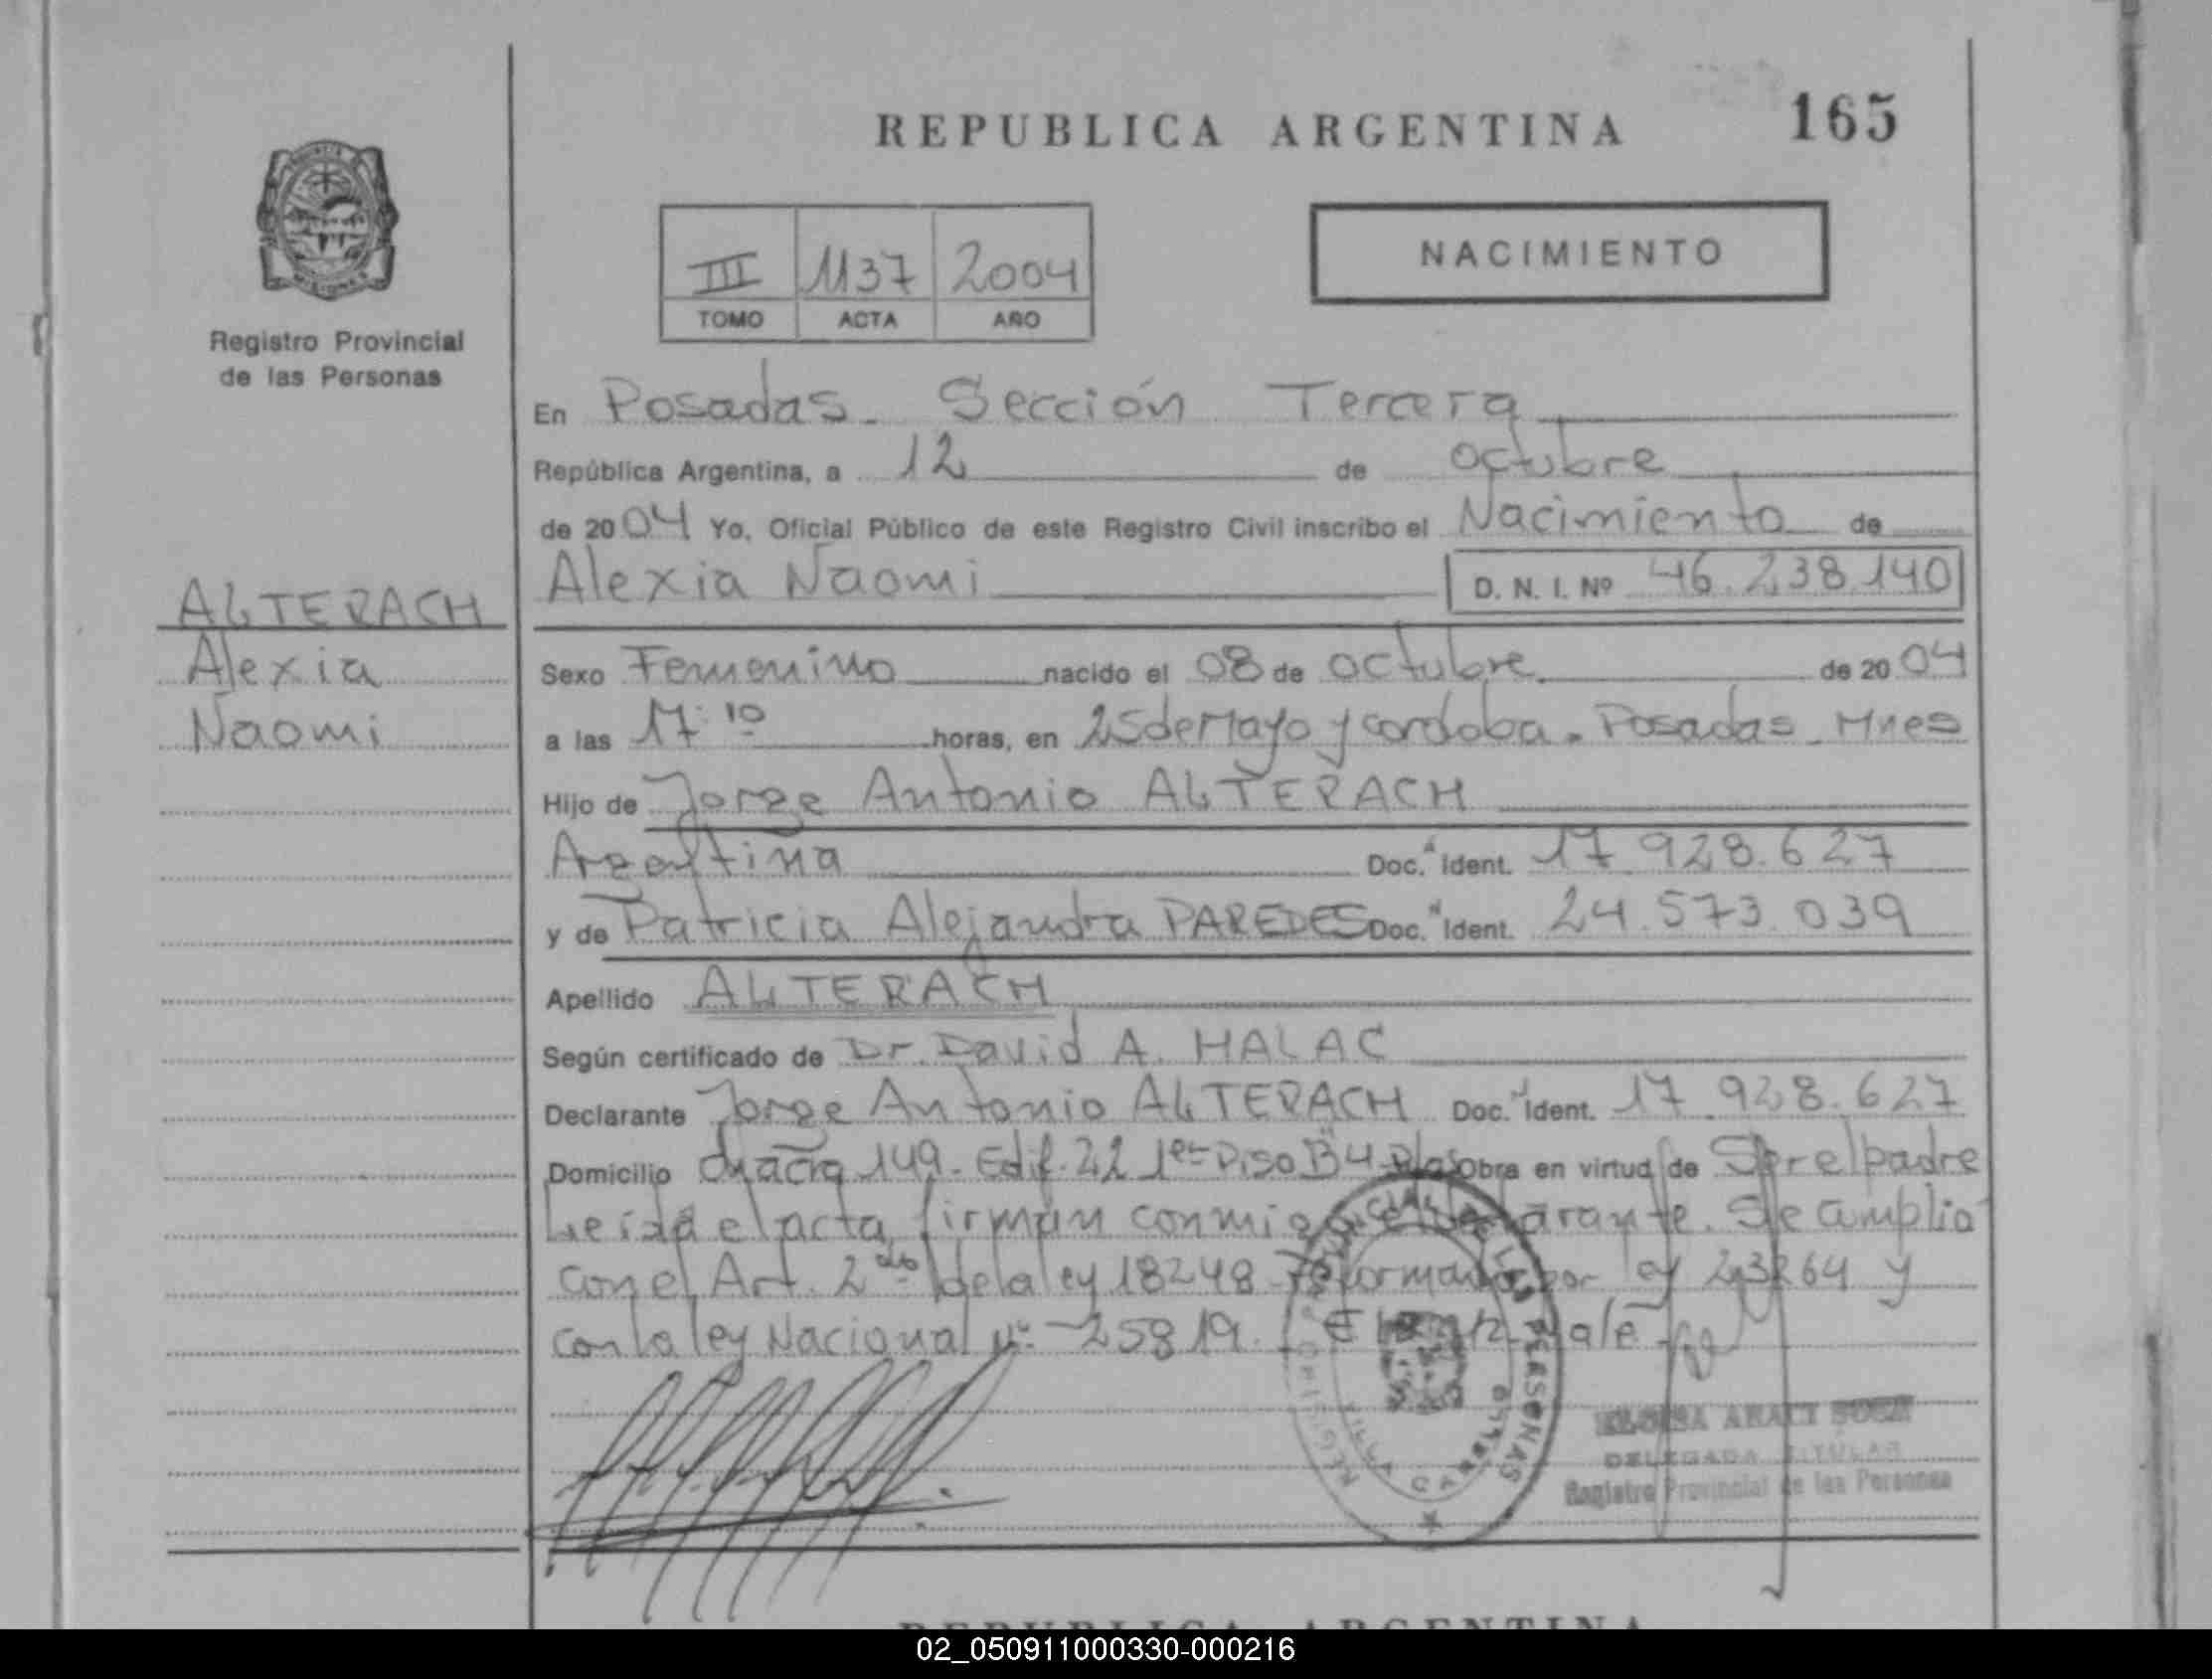 REPUBLICA ARGENTINA 165
NACIMIENTO
III 1137 2004
TOMO ACTA AÑO
Registro Provincial
de las Personas
En Posadas - Sección Tercera
República Argentina, a 12 de octubre
de 2004 Yo, Oficial Público de este Registro Civil inscribo el Nacimiento de
Alexia Naomi D. N. I. Nº 46.238.140
ALTERACH
Alexia
Naomi
Sexo Femenino nacido el 08 de octubre de 2004
a las 17:10 horas, en 25 de Mayo y cordoba. Posadas - Mnes
Hijo de Jorge Antonio ALTERACH
Argentina Doc. Ident. 17.928.627
y de Patricia Alejandra PAREDES Doc. Ident. 24.573.039
Apellido ALTERACH
Según certificado de Dr. David A. HALAC
Declarante Jorge Antonio ALTERACH Doc. Ident. 17.928.627
Domicilio Chacra 149 - Edif. 22 1er Piso B 4 Obra en virtud de Ser el padre
Leída el acta, firman conmigo el declarante. Se Cumplió
con el Art. 2do de la ley 18248 reformado por ley 23264 y
con la ley Nacional nº 25819.
REGISTRO PROVINCIAL DE LAS PERSONAS
VILLA CABELLO
DELEGADA TITULAR
Registro Provincial de las Personas
REPUBLICA ARGENTINA
02_050911000330-000216